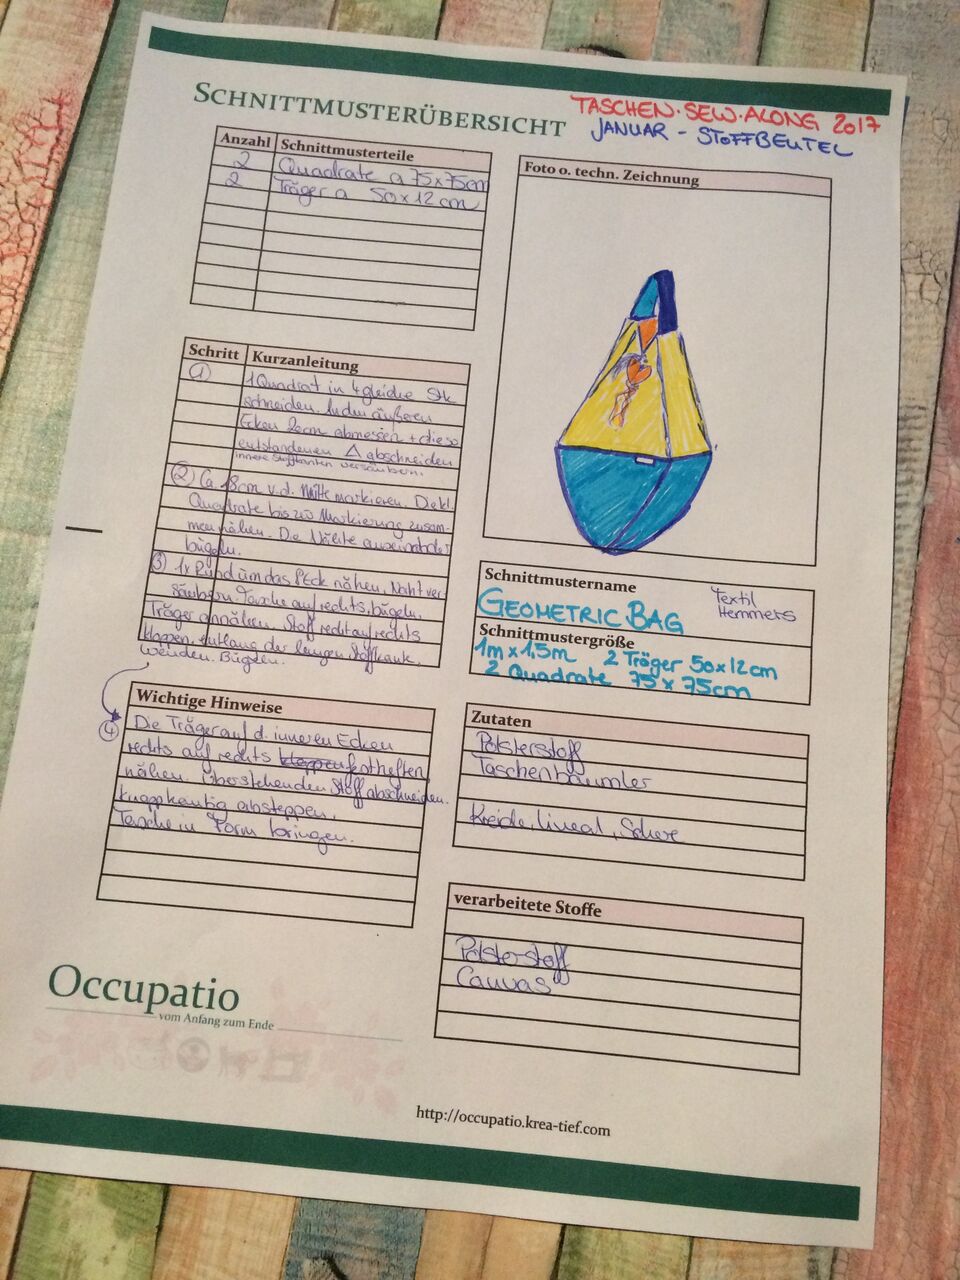 SCHNITTMUSTERÜBERSICHT
TASCHEN·SEW·ALONG 2017
JANUAR - STOFFBEUTEL
Anzahl Schnittmusterteile
2 Quadrate a 75x75cm
2 Träger a 50x12cm
Foto o. techn. Zeichnung
Schritt Kurzanleitung
① 1 Quadrat in 4 gleiche Stk
schneiden. In den äußeren
Ecken 2cm abmessen + diese
entstandenen △ abschneiden
innere Stoffkanten versäubern.
② Ca. 18cm v.d. Mitte markieren. Die kl.
Quadrate bis zur Markierung zusam-
men nähen. Die Nähte auseinander
bügeln.
③ 1x Rund um das nähen, Naht ver-
säubern. Tasche auf rechts bügeln.
Träger annähen. Stoff recht auf rechts
klappen, entlang der langen Stoffkante.
Wenden. Bügeln.
Wichtige Hinweise
④ Die Träger auf d. inneren Ecken
rechts auf rechts klappen festheften
nähen. Überstehenden Stoff abschneiden.
Knappkantig absteppen.
Tasche in Form bringen.
Schnittmustername
GEOMETRIC BAG
Textil
Hemmers
Schnittmustergröße
1m x 1,5m 2 Träger 50x12cm
2 Quadrate 75 x 75cm
Zutaten
Polsterstoff
Taschenbaumler
Kreide, Lineal, Schere
verarbeitete Stoffe
Polsterstoff
Canvas
Occupatio
vom Anfang zum Ende
http://occupatio.krea-tief.com